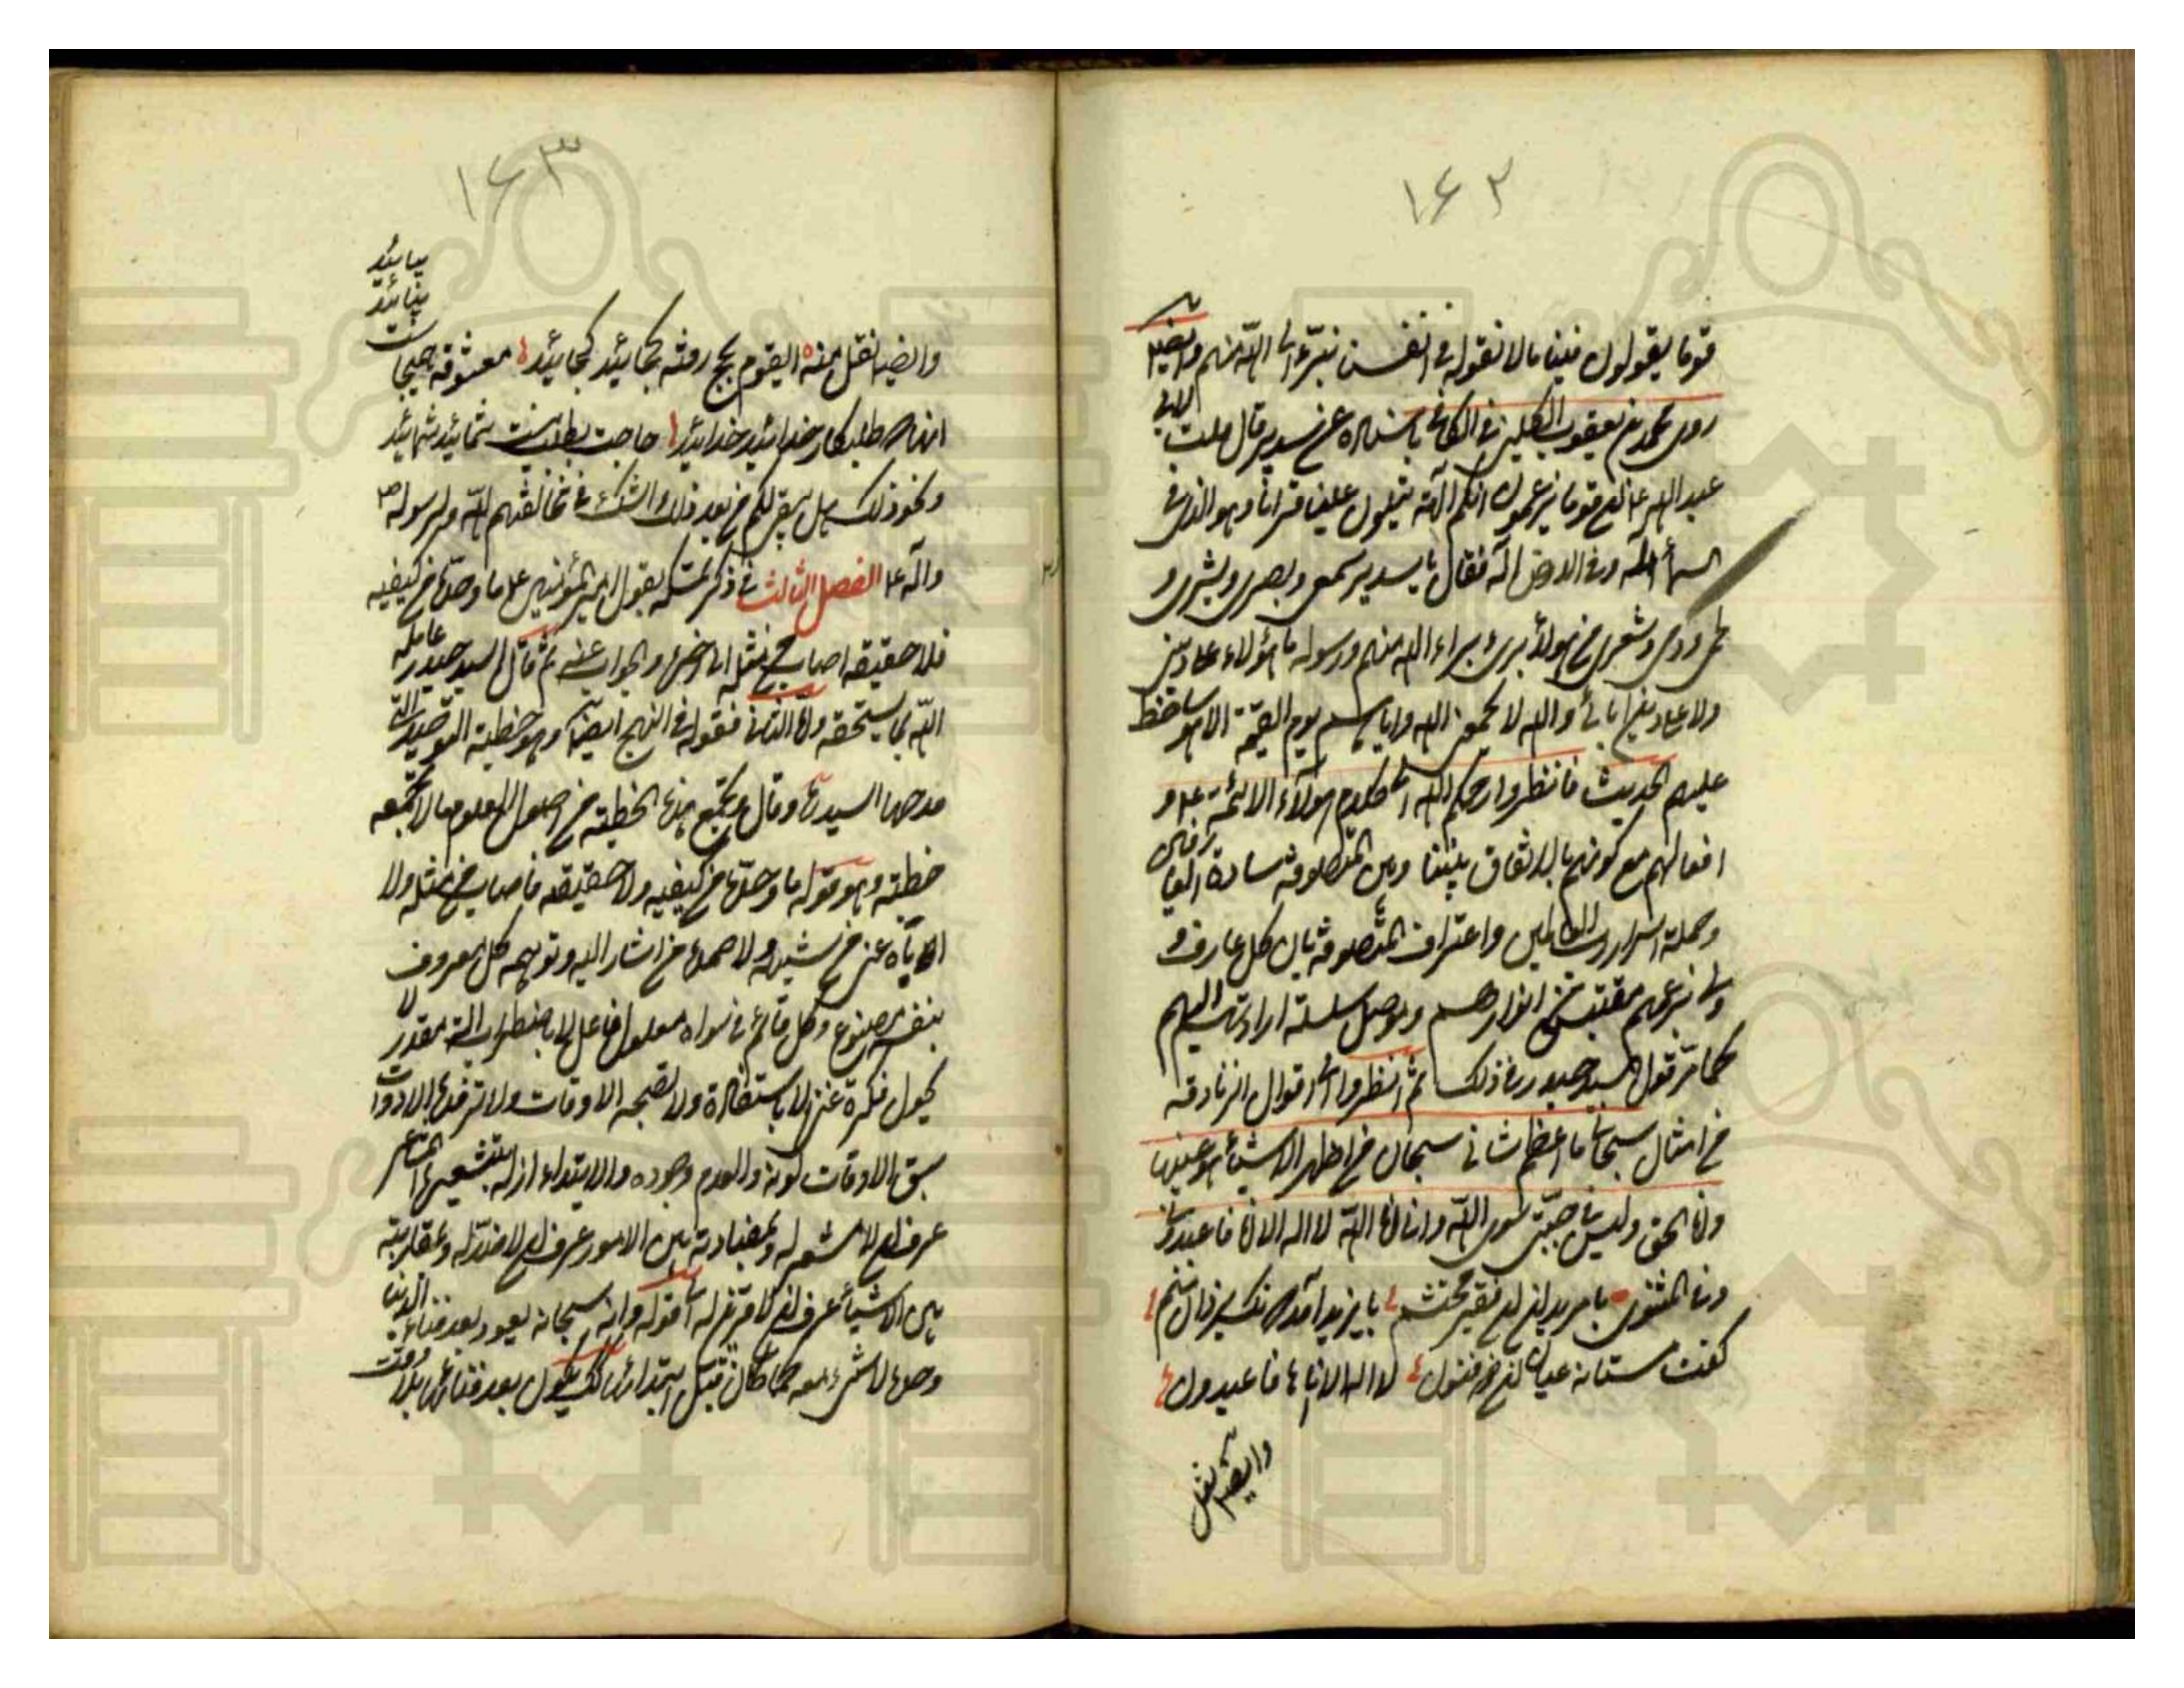 ١٦٢
قوما يقولون فينا ما لا نقوله في انفسنا نبرء الى الله منهم وايضا
روى محمد بن يعقوب الكليني في الكافي باسناده عن سدير قال قلت لابي
عبد الله ع ان قوما يزعمون انكم آلهة يتلون علينا قرانا وهو الذي في
السماء اله وفي الارض اله فقال يا سدير سمعي وبصري وبشري و
لحمي ودمي وشعري من هؤلاء برئ براء الله منهم ورسوله ما هؤلاء على ديني
ولا على دين ابائي والله لا يجمعني الله واياهم يوم القيمة الا هو ساخط
عليهم الحديث فانظروا رحمكم الله الى كلام هؤلاء الائمة ع و
افعالهم مع كونهم بالاتفاق بيننا وبين المتصوفة سادة العارفين
وحملة اسرار رب العالمين واعتراف المتصوفة بان كل عارف و
ولي بزعمهم مقتبس من انوارهم وموصل سلسلة ارادته اليهم
كما مر قول السيد حيدر في ذلك ثم انظروا الى اقوال الزنادقة
من امثال سبحاني ما اعظم شاني سبحان من اظهر الاشياء وهو عينها
وانا الحق وليس في جبتي سوى الله واني انا الله لا اله الا انا فاعبدون
وفي المثنوي با مريدان ان فقير محتشم بايزيد آمد كه نك يزدان منم
كفت مستانه عيان ان ذوفنون لا اله الا انا ها فاعبدون
وايضا نقل
١٦٣
وايضا نقل منه اى قوم بحج رفته كجائيد كجائيد معشوقه همينجاست بيائيد بيائيد
آنانكه طلبكار خدائيد خدائيد حاجت بطلب نيست شمائيد شمائيد
ونحو ذلك هل يبقى لكم من بعد ذلك الشك في مخالفتهم لله ولرسوله ص
وآله ع الفصل الثالث في ذكر تمسكه بقول امير المؤمنين ع ما وحده من كيفيه
فلا حقيقه اصاب من مثله الى اخره والجواب عنه ثم قال السيد حيدر عامله
الله بما يستحقه واما الثاني فقوله في النهج ايضا وهو خطبة التوحيد التي
مدحها السيد وقال ع تجمع هذه الخطبة من اصول العلوم ما لا تجمعه
خطبة وهو قوله ما وحده من كيفيه ولا حقيقته اصاب من مثله ولا
اياه عنى من شبهه ولا صمده من اشار اليه وتوهمه كل معروف
بنفسه مصنوع وكل قائم في سواه معلول فاعل لا باضطراب الة مقدر لا
بجول فكرة غني لا باستفادة ولا تصحبه الاوقات ولا ترفده الادوات
سبق الاوقات كونه والعدم وجوده والابتداء ازله بتشعيره المشاعر
عرف ان لا مشعر له وبمضادته بين الامور عرف ان لا ضد له وبمقارنته
بين الاشياء عرف ان لا قرين له الى قوله وانه سبحانه يعود بعد فناء الدنيا
وحده لا شئ معه كما كان قبل ابتدائها كذلك يكون بعد فنائها بلا وقت